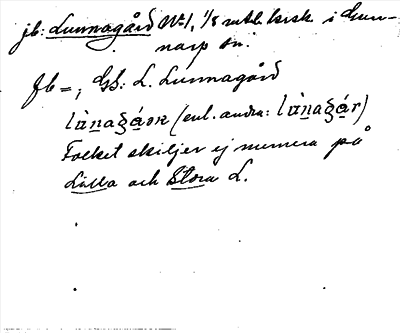 jb: Lunnagård No 1, 1/8 mtl. krsk i Gun-
narp sn.
fb =, Gs: L. Lunnagård
lùnagáɹ (enl. andra: lùnagár)
Folket skiljer ej numera på
Lilla och Stora L.